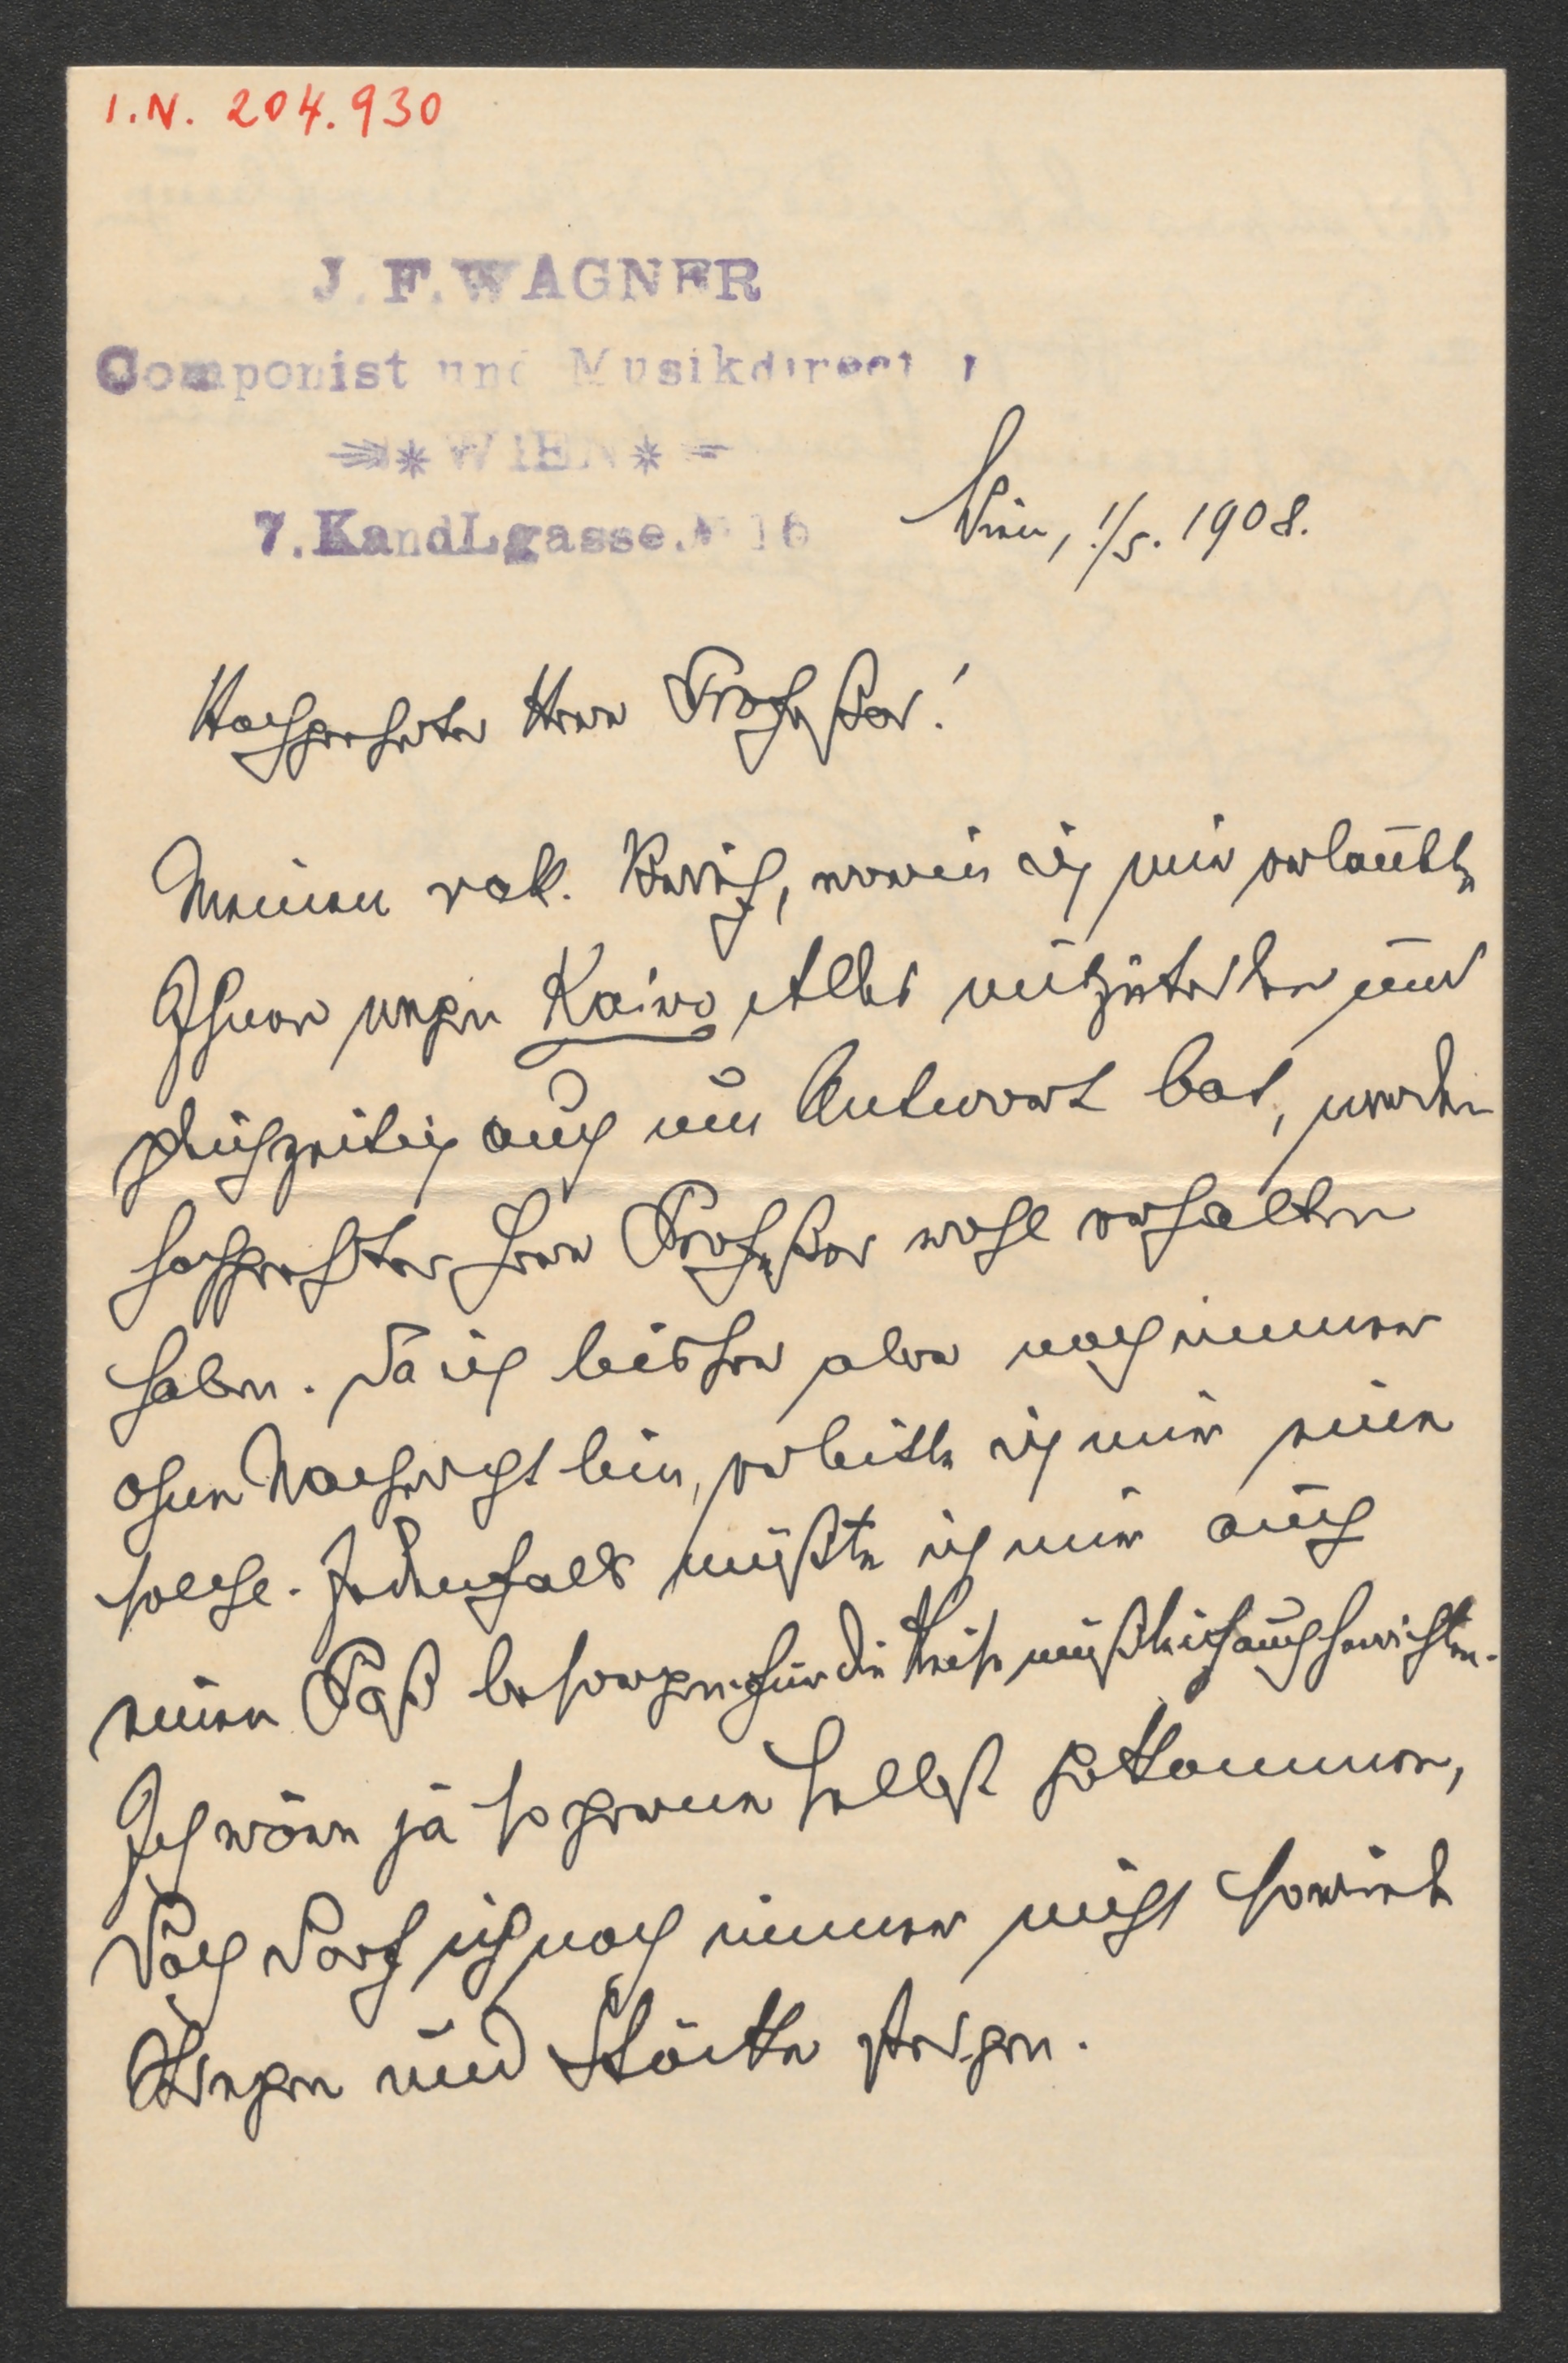 I.N. 204.930
J. F. WAGNER
Componist und Musikdirect r
WIEN
7. KandLgasse. № 16
Wien, 1./5. 1908.
Hochgeehrter Herr Profeßor!
Meinen rek. Brief, worin ich mir erlaubte
Ihnen wegen Kairo Alles mitzuteilen und
gleichzeitig auch um Antwort bat, werden
hochgeehrter Herr Profeßor wohl erhalten
haben. Da ich bisher aber noch immer
ohne Nachricht bin, erbitte ich mir eine
solche. Jedenfalls müßte ich mir auch
einen Paß besorgen für die Reise müßte ich auch herrichten.
Ich wäre ja so gerne selbst gekommen,
doch darf ich noch immer nicht soviele
Stiegen und Stöcke steigen.